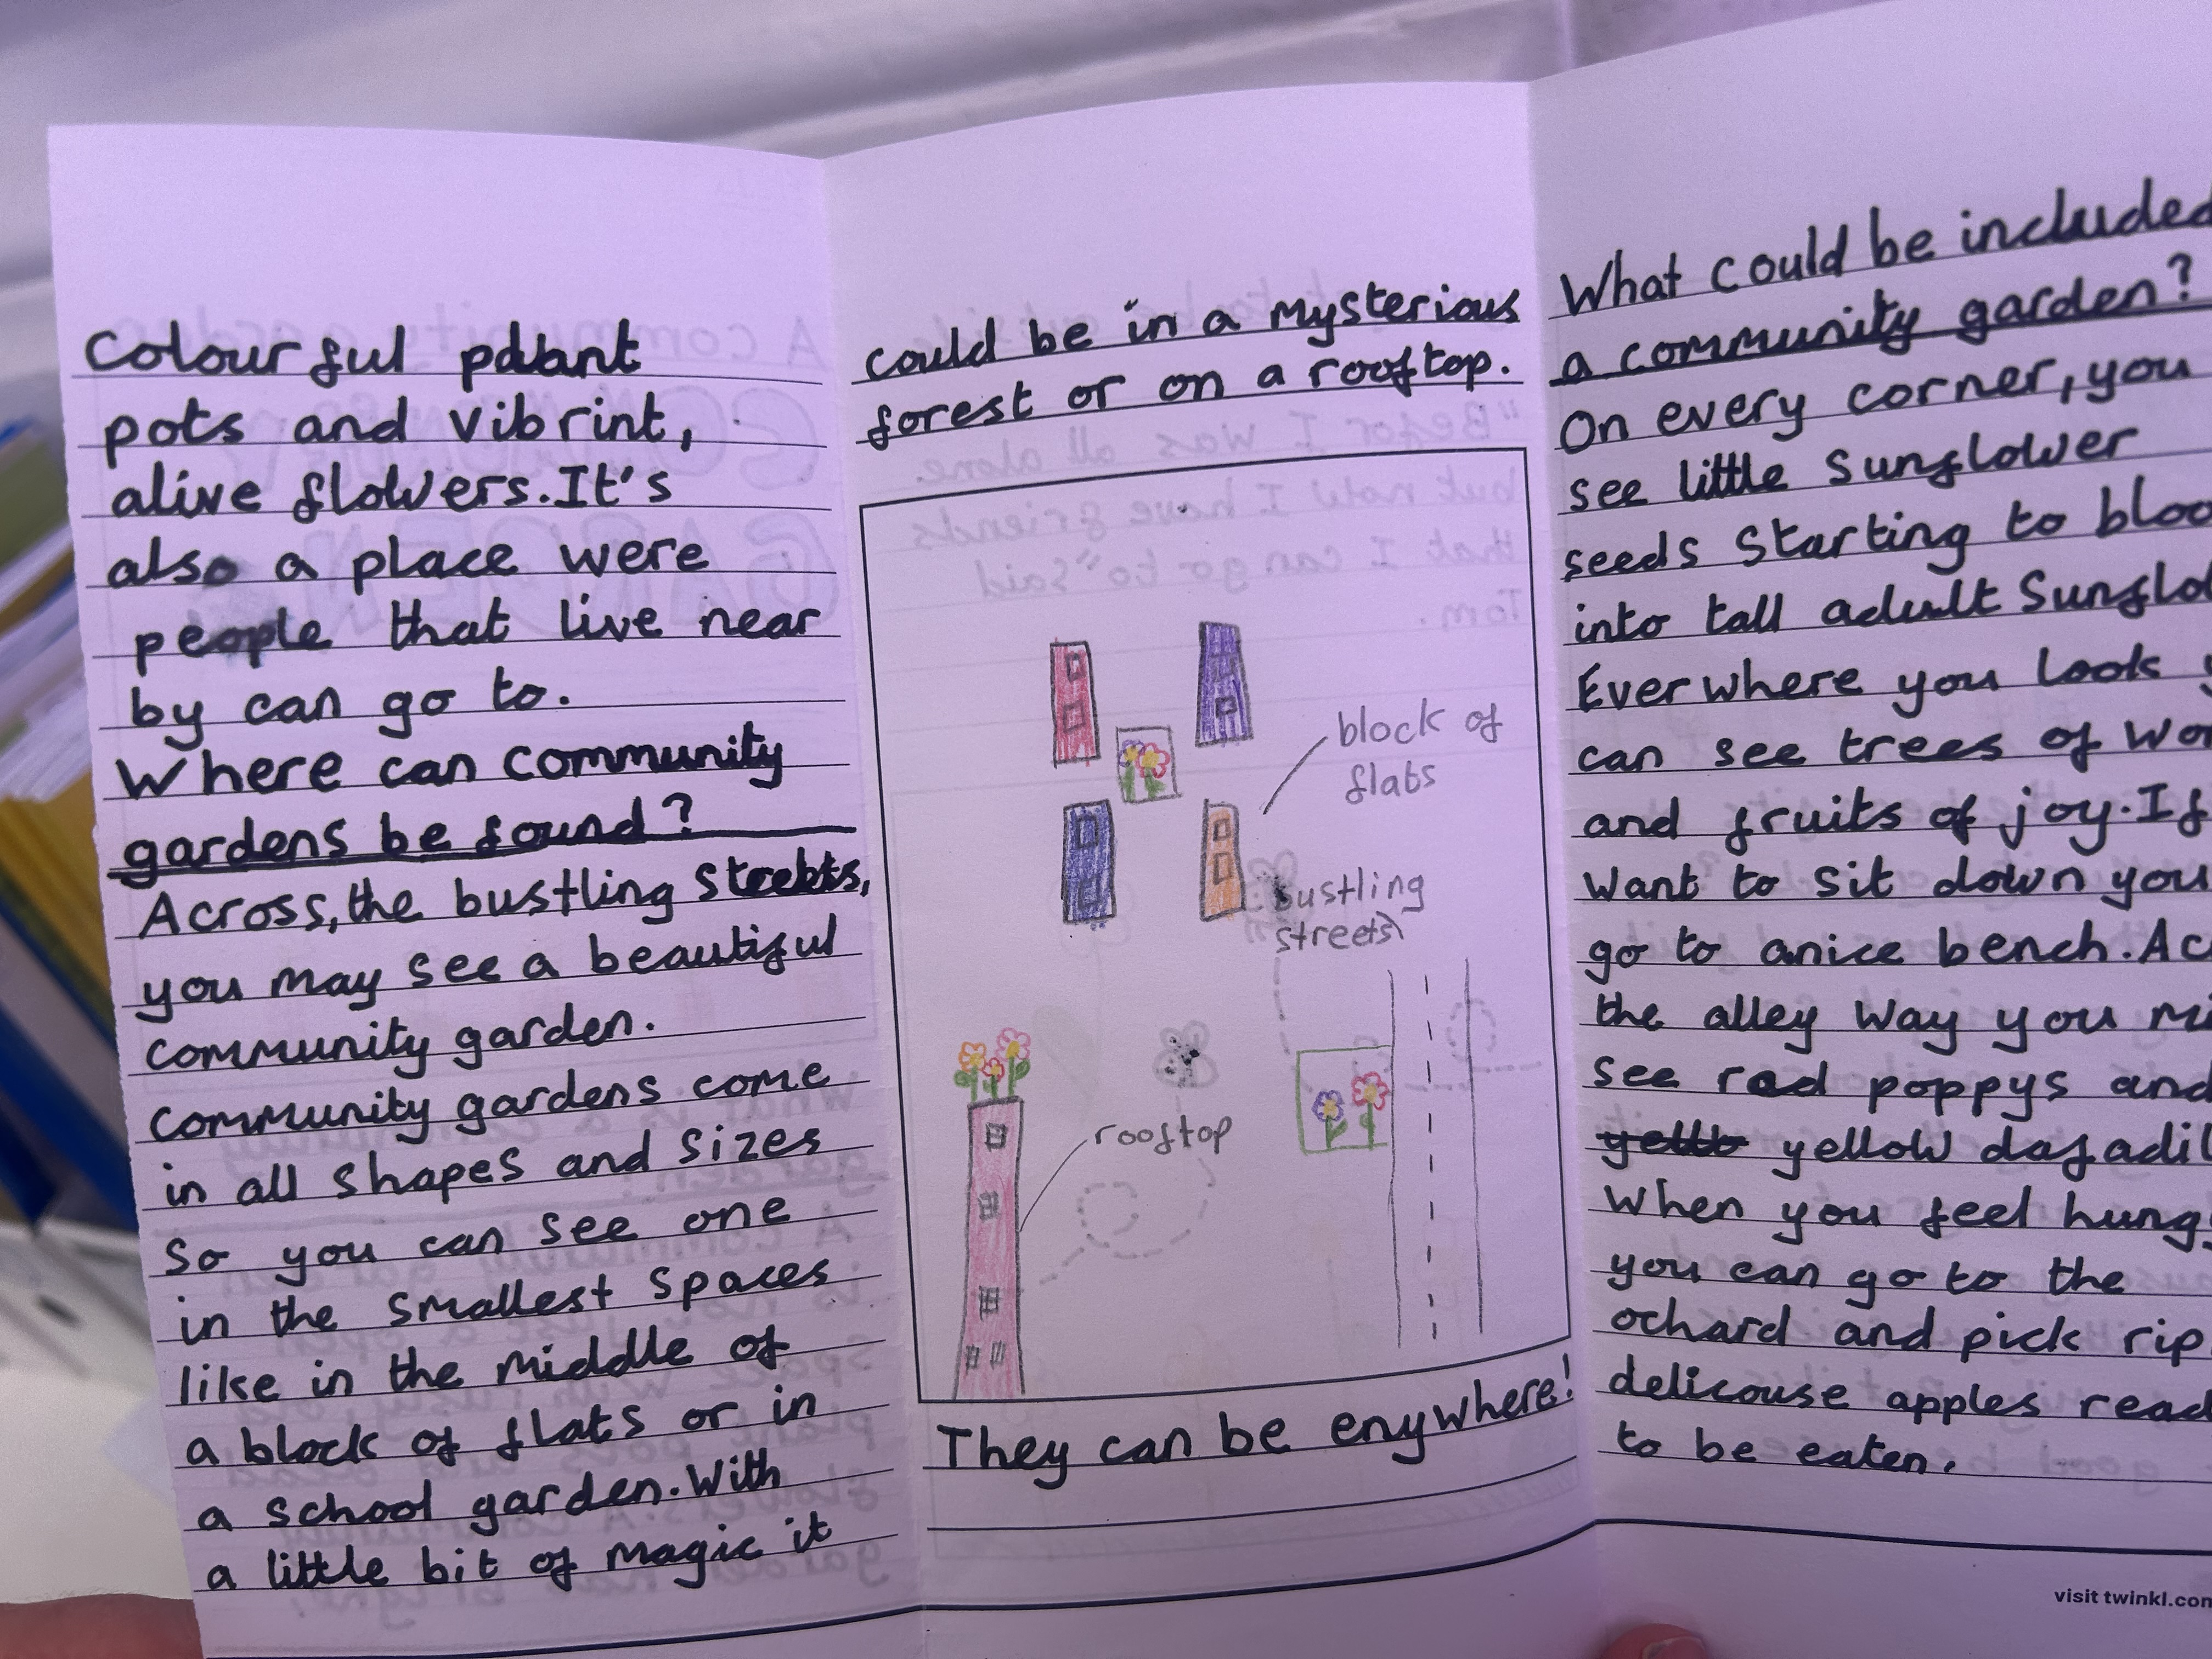 Colourful plant
pots and vibrint,
alive flowers. It's
also a place were
people that live near
by can go to.
Where can community
gardens be found?
Across, the bustling streets,
you may see a beautiful
community garden.
Community gardens come
in all shapes and sizes
so you can see one
in the smallest spaces
like in the middle of
a block of flats or in
a school garden. With
a little bit of magic it
could be in a mysterious
forest or on a rooftop.
block of
flats
bustling
streets
rooftop
They can be enywhere!
What could be included
a community garden?
On every corner, you
see little sunflower
seeds starting to
into tall adult
Everwhere you look
can see trees of
and fruits of joy. If
want to sit down you
go to a nice bench.
the alley way you
see red poppys and
yellow
When you feel
you can go to the
ochard and pick
delicouse apples
to be eaten.
visit twinkl.com